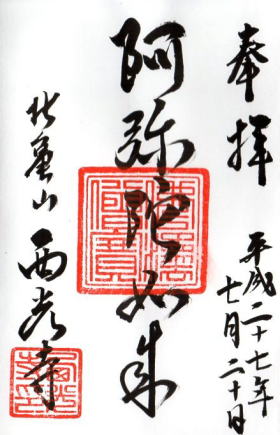 奉拝
平成二十七年
七月二十日
阿弥陀如来
山 西光寺